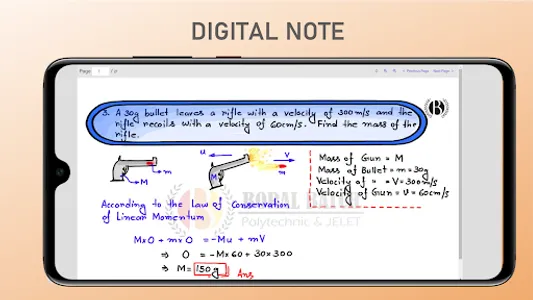 DIGITAL NOTE
Page 1 / 21
Previous Page Next Page
3. A 30g bullet leaves a rifle with a velocity of 300m/s and the
rifle recoils with a velocity of 60cm/s. Find the mass of the
rifle.
m
M
u
V
m
M
Mass of Gun = M
Mass of Bullet = m = 30g
Velocity of " = V = 300m/s
Velocity of Gun = u = 60cm/s
According to the Law of Conservation
of Linear Momentum
Polytechnic & JELET
M×0 + m×0 = -Mu + mV
⇒ 0 = -M×60 + 30×300
⇒ M = 150g Ans